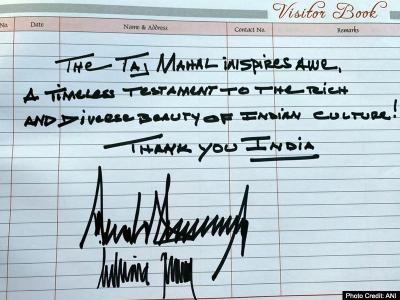 Visitor Book
No. Date Name & Address Contact No. Remarks
THE TAJ MAHAL INSPIRES AWE,
A TIMELESS TESTAMENT TO THE RICH
AND DIVERSE BEAUTY OF INDIAN CULTURE!
THANK YOU INDIA
Photo Credit: ANI